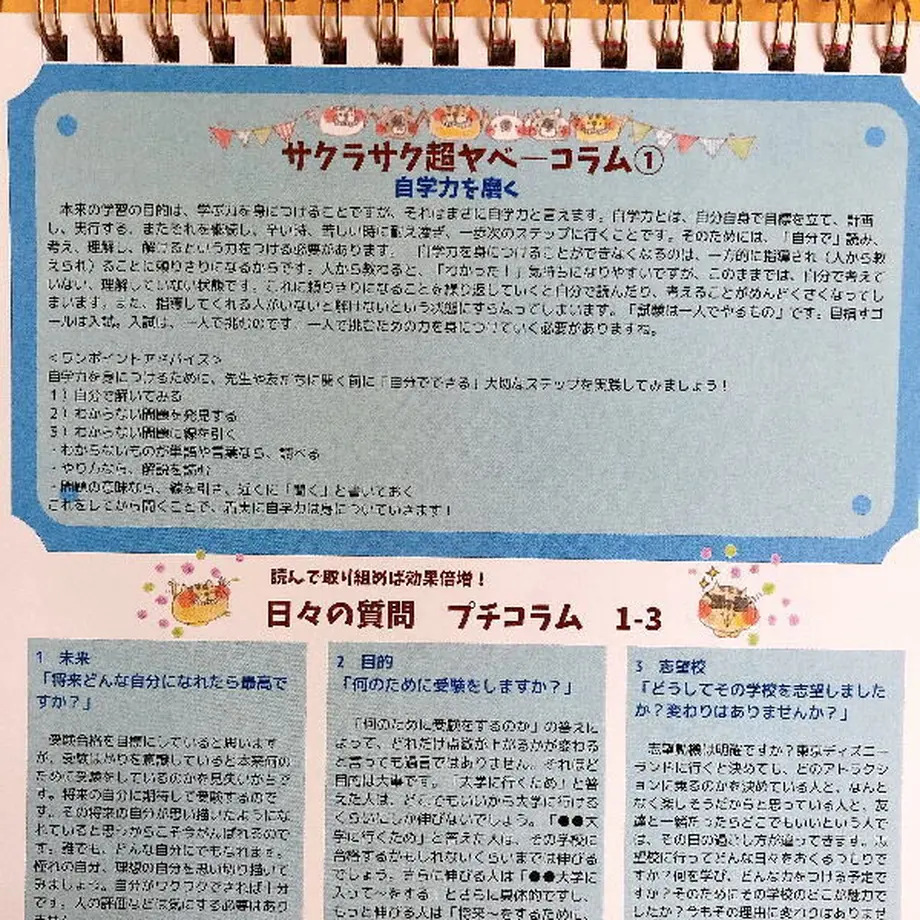 サクラサク超ヤベーコラム①
自学力を磨く
本来の学習の目的は、学ぶ力を身につけることですが、それはまさに自学力と言えます。自学力とは、自分自身で目標を立て、計画
し、実行する。またそれを継続し、辛い時、苦しい時に耐え凌ぎ、一歩次のステップに行くことです。そのためには、「自分で」読み、
考え、理解し、解けるという力をつける必要があります。 自学力を身につけることができなくなるのは、一方的に指導され（人から教
えられ）ることに頼りきりになるからです。人から教わると、「わかった！」気持ちになりやすいですが、このままでは、自分で考えて
いない、理解していない状態です。これに頼りきりになることを繰り返していくと自分で読んだり、考えることがめんどくさくなってし
まいます。また、指導してくれる人がいないと解けないという状態にすらなってしまいます。「試験は一人でやるもの」です。目指すゴ
ールは入試。入試は、一人で挑むのです。一人で挑むための力を身につけていく必要がありますね。
＜ワンポイントアドバイス＞
自学力を身につけるために、先生や友だちに聞く前に「自分でできる」大切なステップを実践してみましょう！
1）自分で解いてみる
2）わからない問題を発見する
3）わからない問題に線を引く
・わからないものが単語や言葉なら、調べる
・やり方なら、解説を読む
・問題の意味なら、線を引き、近くに「聞く」と書いておく
これをしてから聞くことで、着実に自学力は身についていきます！
読んで取り組めば効果倍増！
日々の質問 プチコラム 1-3
1 未来
「将来どんな自分になれたら最高で
すか？」
受験合格を目標にしていると思います
が、受験ばかりを意識していると本来何の
ために受験をしているのかを見失いがちで
す。将来の自分に期待して受験するので
す。その将来の自分が思い描いたようにな
れていると思うからこそ今がんばれるので
す。誰でも、どんな自分にでもなれます。
憧れの自分、理想の自分を思い切り描いて
みましょう。自分がワクワクできれば十分
です。人の評価などは気にする必要はあり
ません。
2 目的
「何のために受験をしますか？」
「何のために受験をするのか」の答えに
よって、どれだけ点数が上がるかが変わる
と言っても過言ではありません。それほど
目的は大事です。「大学に行くため」と答
えた人は、どこでもいいから大学に行ける
くらいにしか伸びないでしょう。「●●大
学に行くため」と答えた人は、その学校に
合格するかもしれないくらいまでは伸びる
でしょう。さらに伸びる人は「●●大学に
入って〜をする」とさらに具体的ですし、
もっと伸びる人は「将来〜をするために、
3 志望校
「どうしてその学校を志望しました
か？変わりはありませんか？」
志望動機は明確ですか？東京ディズニー
ランドに行くと決めても、どのアトラクシ
ョンに乗るのかを決めている人と、なんと
なく楽しそうだからと思っている人と、友
達と一緒だったらどこでもいいという人で
は、その日の過ごし方が違ってきます。志
望校に行ってどんな日々をおくるつもりで
すか？何を学び、どんな力をつける予定で
すか？そのためにその学校のどこが魅力で
したか？今もその理由に変わりはありません